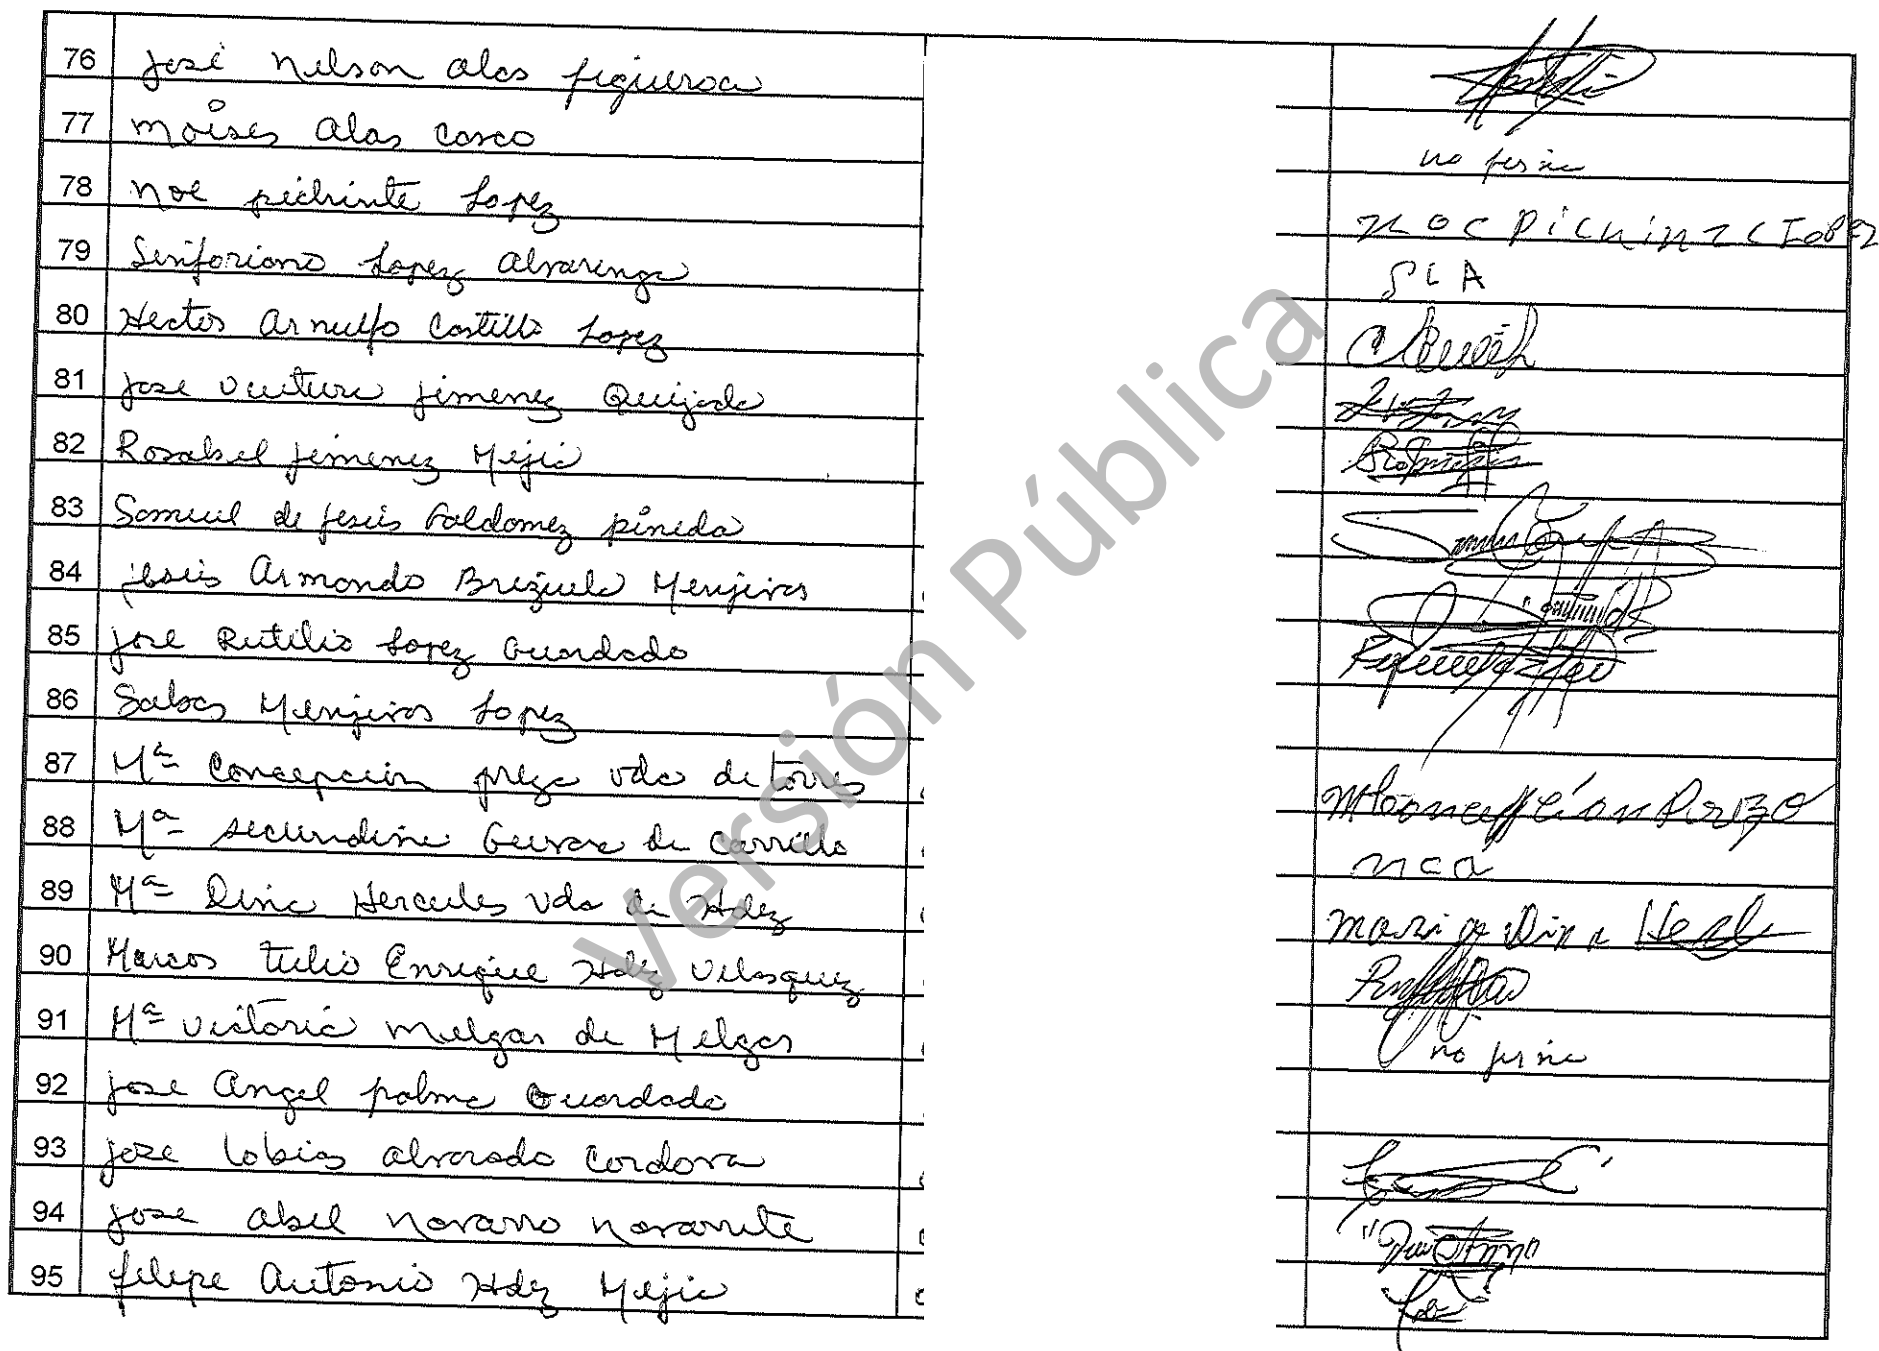 76 José Nelson Alas figueroa
77 Moises Alas Casco no firma
78 Noe pichinte Lopez
79 Sinforiano Lopez Alvarenga SLA
80 Hector Arnulfo Castillo Lopez
81 Jose Ventura Jimenez Quijada
82 Rosabel Jimenez Mejia
83 Samuel de Jesús Galdamez pineda
84 jesus Armando Brizuela Menjivar
85 jose Rutilio Lopez Guardado
86 Sabas Menjivar Lopez
87 Mª Concepción preza vda de torres
88 Mª secundina Guevara de Carrillo
89 Mª Dina Hercules vda de Hdez maria Dina
90 Marcos Tulio Enrique Hdez Velasquez
91 Mª Victoria Melgar de Melgar no firma
92 jose Angel palma Guardado
93 jose tobias alvarado Cordova
94 jose abel navarro navarrete
95 felipe Antonio Hdez Mejia
Versión Pública